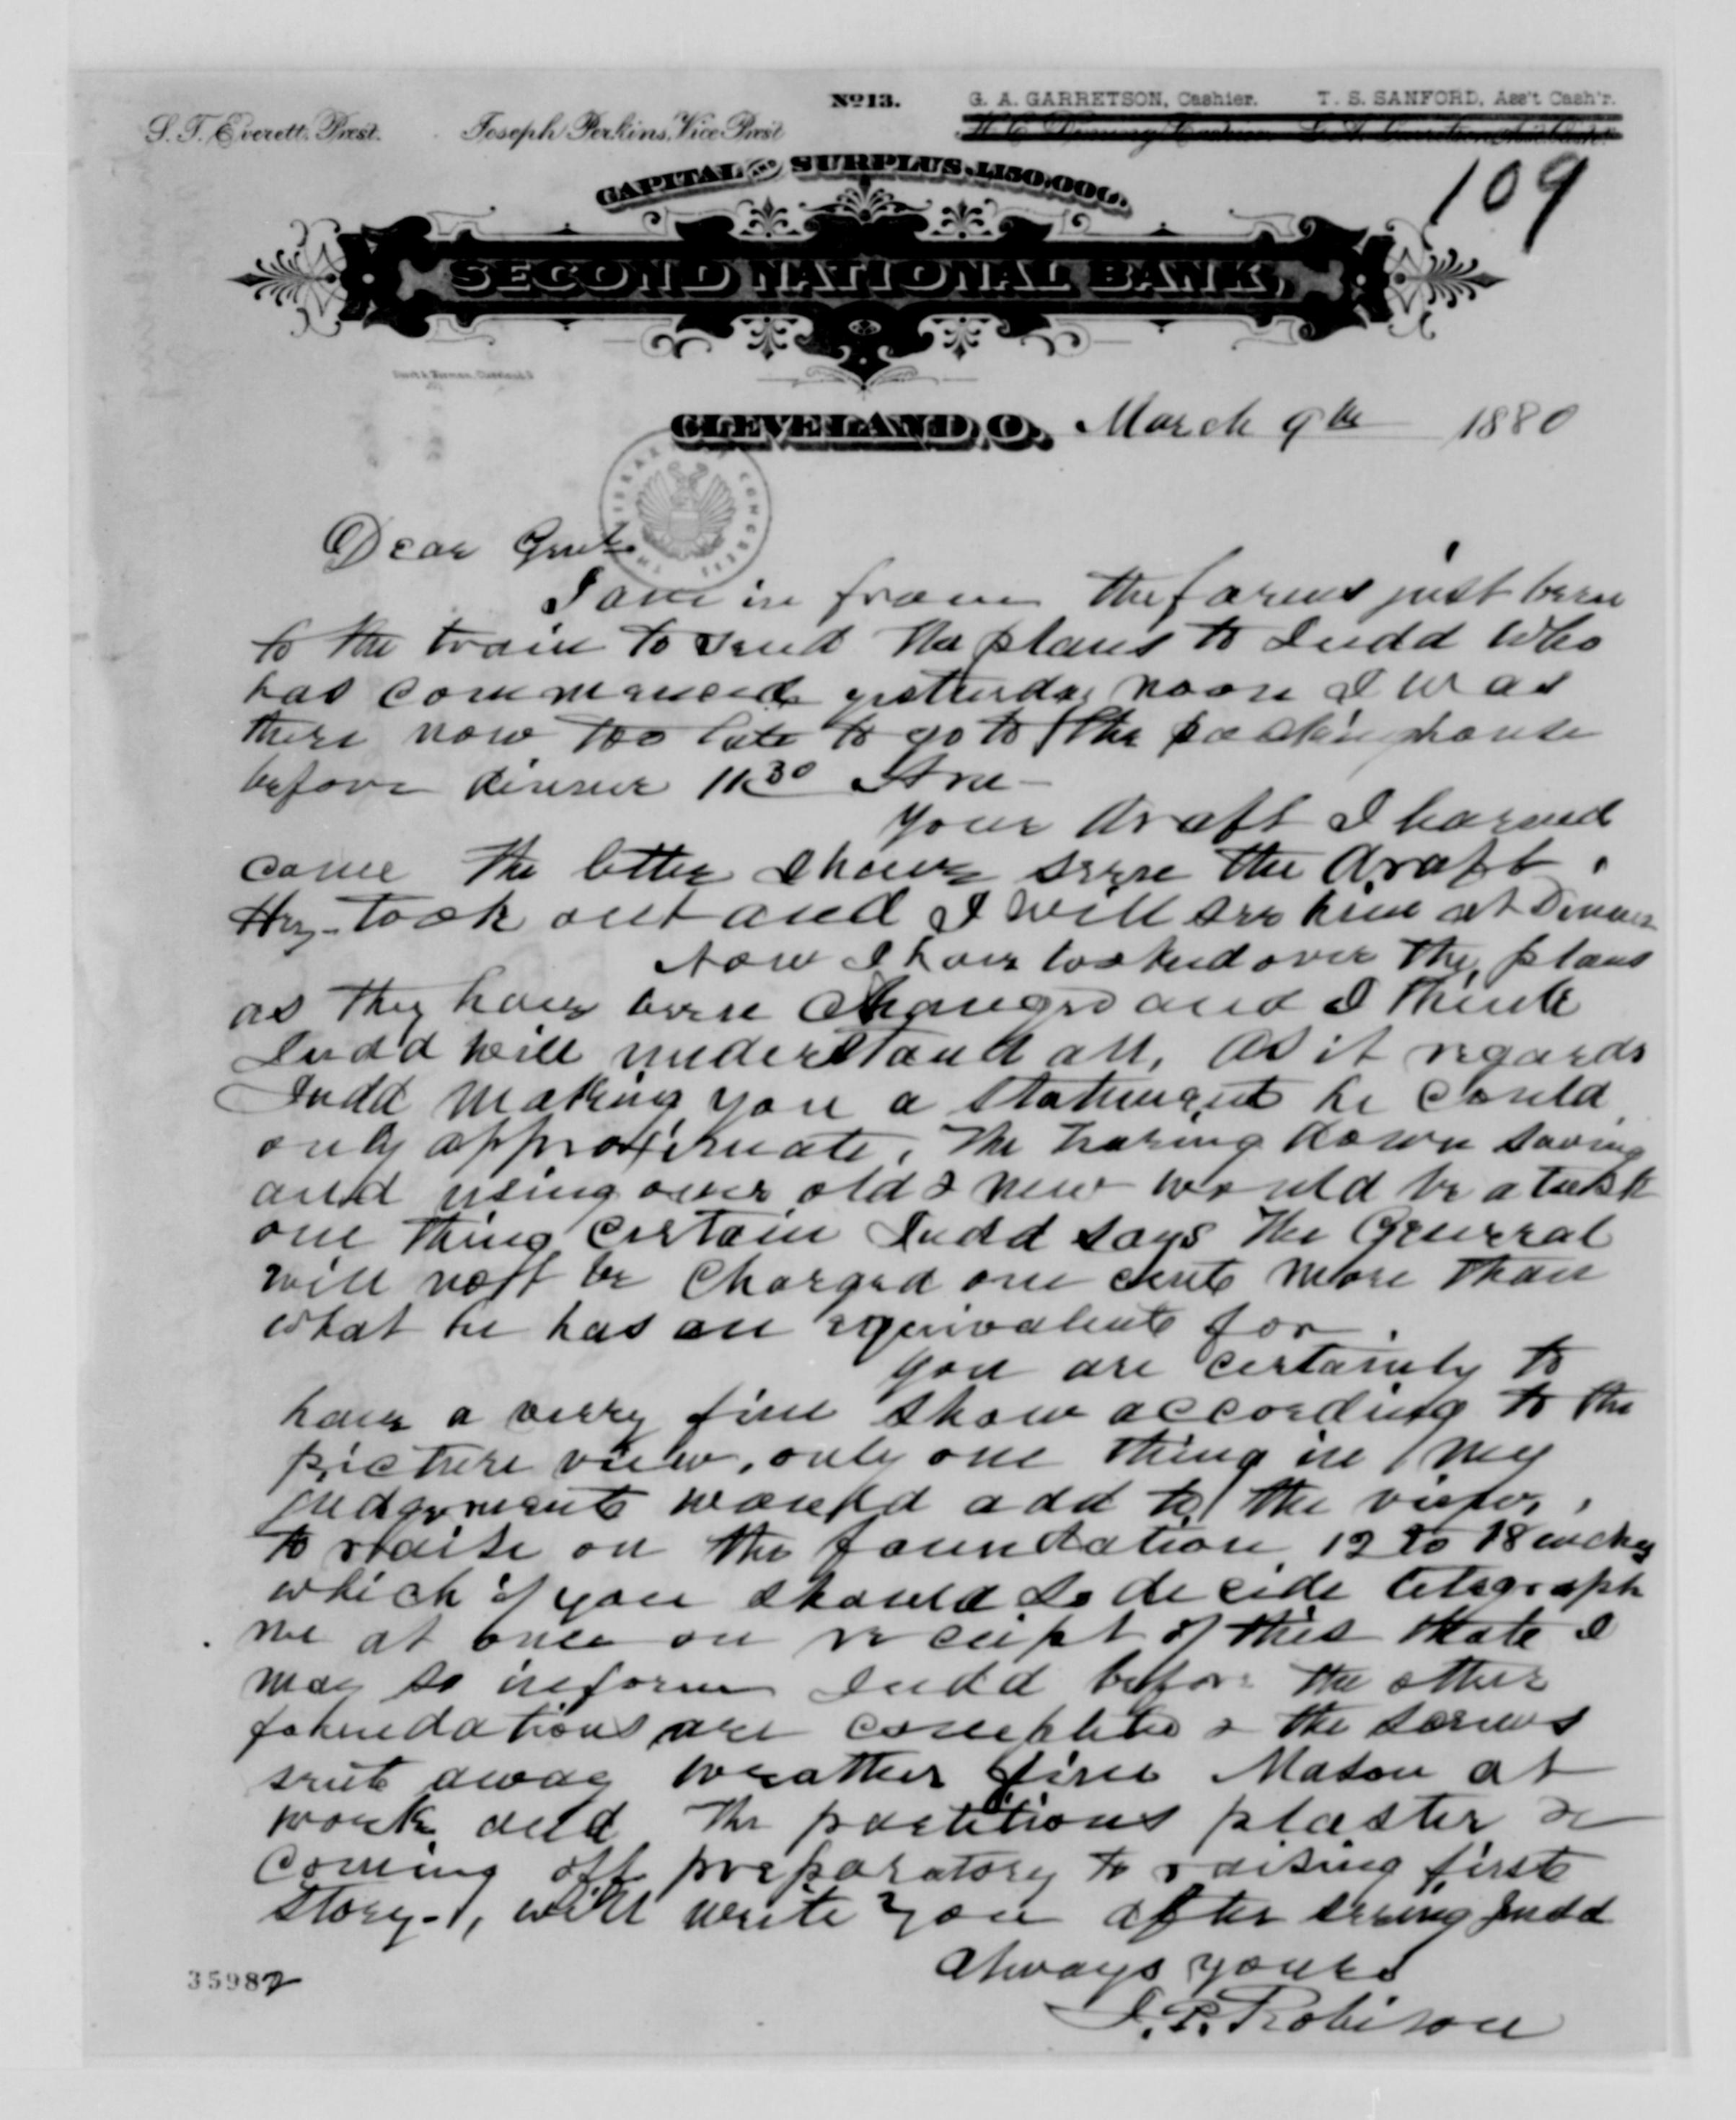 No. 13.
G. A. GARRETSON, Cashier. T. S. SANFORD, Ass't Cash'r.
S. T. Everett, Prest. Joseph Perkins, Vice Prest
CAPITAL AND SURPLUS, 1,150,000.
109
SECOND NATIONAL BANK,
CLEVELAND, O. March 9th 1880
Dear Genl
I am in from the farms just been
to the train to send the plans to Judd who
has commenced yesterday noon I was
there now too late to go to the packing house
before dinner 11.30 Am
Your draft I learned
came the letter I have seen the draft.
Hy. took out and I will see him at Dinner
Now I have looked over the plans
as they have been changed and I think
Judd will understand all, as it regards
Judd making you a statement he could
only approximate, the taking down saving
and using over old & new would be a task
one thing certain Judd says the General
will not be charged one cent more than
what he has an equivalent for.
You are certainly to
have a verry fine show according to the
picture view, only one thing in my
judgement would add to the view,
to raise on the foundation 12 to 18 inches
which if you should so decide telegraph
me at once on reciept of this that I
may so inform Judd before the other
foundations are complete & the screws
sent away weather fine Mason at
work and the partitions plaster &
coming off preparatory to raising first
story-, will write you after seeing Judd
Always yours
J. P. Robison
35982